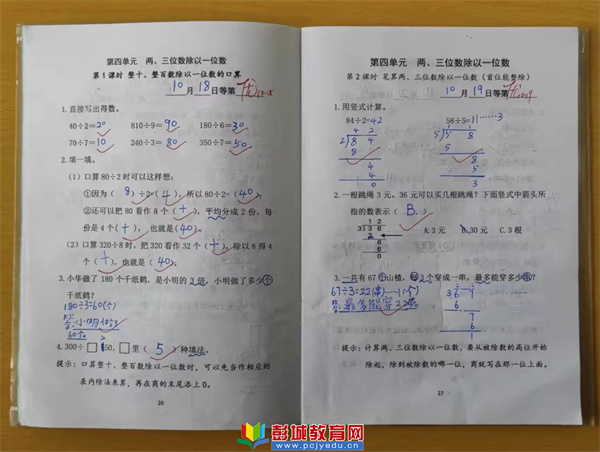 第四单元 两、三位数除以一位数
第1课时 整十、整百数除以一位数的口算
10月18日等第优
1.直接写出得数。
40÷2=20 810÷9=90 180÷6=30
70÷7=10 240÷3=80 350÷7=50
2.填一填。
(1)口算80÷2时可以这样想:
①因为(8)÷2=(4),所以80÷2=(40)。
②还可以把80看作8个(十),平均分成2份,每
份是4个(十),也就是(40)。
(2)口算320÷8时,把320看作32个(十),除以8得4
个(十),也就是(40)。
3.小华做了180个千纸鹤,是小明的3倍,小明做了多少个
千纸鹤?
180÷3=60(个)
60个。
4.300÷□ 50,□里(5)种填法。
提示:口算整十、整百数除以一位数时,可以先当作相应的
表内除法来算,再在商的末尾添上0。
26
第四单元 两、三位数除以一位数
第2课时 笔算两、三位数除以一位数(首位能整除)
10月19日等第优
1.用竖式计算。
84÷2=42 58÷5=11……3
4 2 1 1
2 8 4 5 5 8
8 5
4 8
4 5
0 3
2.一根跳绳3元,36元可以买几根跳绳?下面竖式中箭头所
指的数表示(B)。
1 2
3 3 6
3
6
6
0
A.3元 B.30元 C.3根
3.一共有67个山楂,每3个穿成一串,最多能穿多少串?
67÷3=22(串)……1(个)
答:最多能穿22串。
3 6 7
6
7
6
1
提示:计算两、三位数除以一位数,要从被除数的高位开始
除起,除到被除数的哪一位,商就写在那一位上面。
27
彭城教育网
www.pcjyedu.com